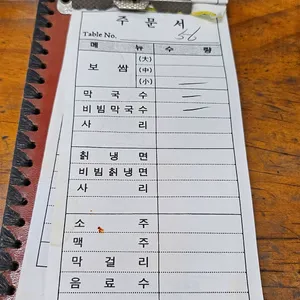 주 문 서
Table No. 56
메 뉴 수 량
보 쌈 (大)
(中)
(小)
막 국 수
비 빔 막 국 수
사 리
칡 냉 면
비 빔 칡 냉 면
사 리
소 주
맥 주
막 걸 리
음 료 수